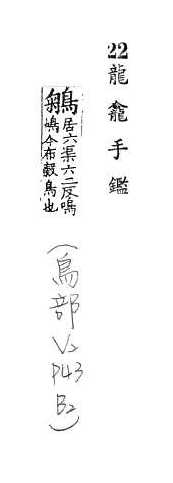 22 龍龕手鑑
鵴居六渠六二反鳴
鳩今布穀鳥也
(鳥部 V2 P43 B2)